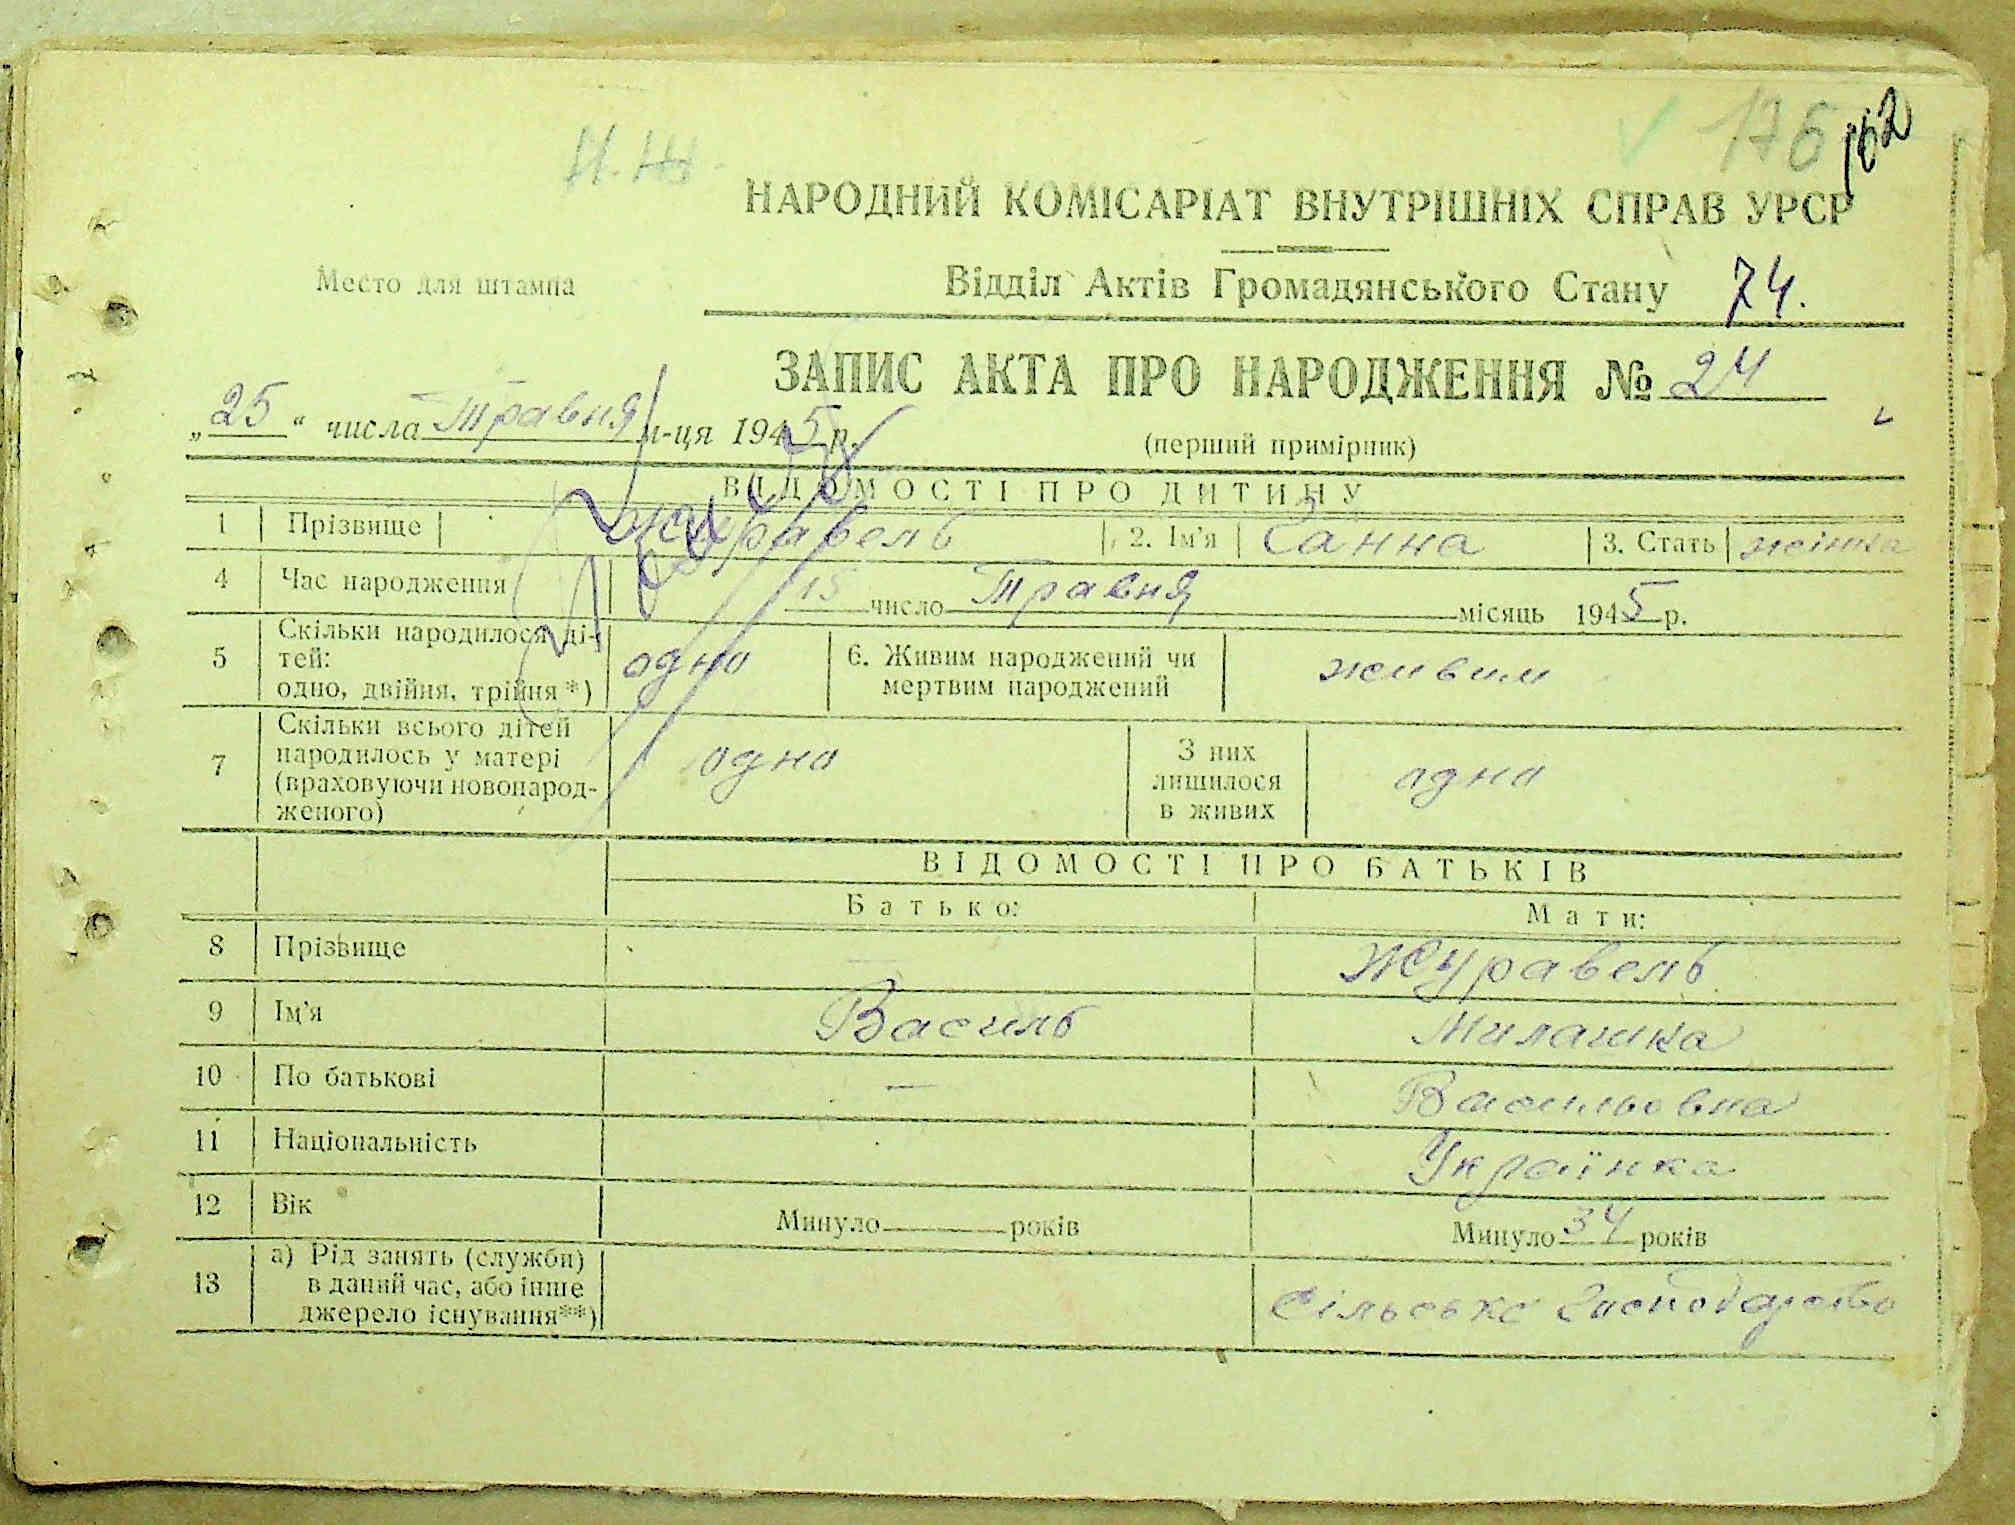 176
162
Н. Ж.
НАРОДНИЙ КОМІСАРІАТ ВНУТРІШНІХ СПРАВ УРСР
Место для штампа
Відділ Актів Громадянського Стану 74.
ЗАПИС АКТА ПРО НАРОДЖЕННЯ № 24
„25“ числа Травня м-ця 1945 р.
(перший примірник)
ВІДОМОСТІ ПРО ДИТИНУ
1 Прізвище Журавель 2. Ім'я Ганна 3. Стать жінка
4 Час народження 15 число Травня місяць 1945 р.
5 Скільки народилося ді-
тей:
одно, двійня, трійня*) одно 6. Живим народжений чи
мертвим народжений живим
7 Скільки всього дітей
народилось у матері
(враховуючи новонарод-
женого) одно З них
лишилося
в живих одно
ВІДОМОСТІ ПРО БАТЬКІВ
Батько: Мати:
8 Прізвище — Журавель
9 Ім'я Василь Милашка
10 По батькові — Васильовна
11 Національність Українка
12 Вік Минуло років Минуло 34 років
13 а) Рід занять (служби)
в даний час, або інше
джерело існування**) Сільське господарство